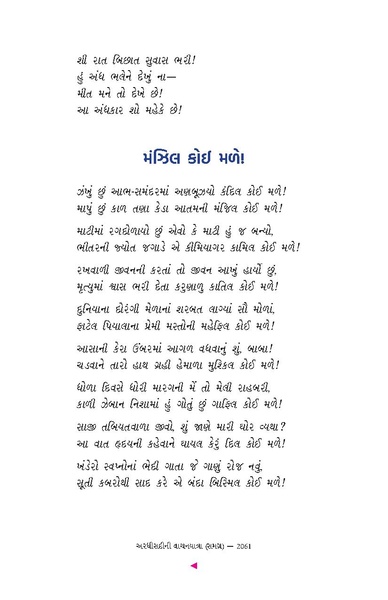 શી રાત બિછાત સુવાસ ભરી!
હું અંધ ભલેને દેખું ના—
મીત મને તો દેખે છે!
આ અંધકાર શો મહેકે છે!
મંઝિલ કોઈ મળે!
ઝંખું છું આભ-સમંદરમાં અણબૂઝ્યો કંદિલ કોઈ મળે!
માપું છું કાળ તણા કેડા આતમની મંજિલ કોઈ મળે!
માટીમાં રગદોળાયો છું એવો કે માટી હું જ બન્યો,
ભીતરની જ્યોત જગાડે એ કીમિયાગર કામિલ કોઈ મળે!
રખવાળી જીવનની કરતાં તો જીવન આખું હાર્યો છું,
મૃત્યુમાં શ્વાસ ભરી દેતા કરુણાળુ કાતિલ કોઈ મળે!
દુનિયાના દોરંગી મેળાનાં શરબત લાગ્યાં સૌ મોળાં,
ફાટેલ પિયાલાના પ્રેમી મસ્તોની મહેફિલ કોઈ મળે!
આસાની કેરા ઉંબરમાં આગળ વધવાનું શું, બાબા!
ચડવાને તારો હાથ ગ્રહી હેમાળા મુશ્કિલ કોઈ મળે!
ધોળા દિવસે ધોરી મારગની મેં તો મેલી રાહબરી,
કાળી ઝેબાન નિશામાં હું ગોતું છું ગાફિલ કોઈ મળે!
સાજી તબિયતવાળા જીવો, શું જાણે મારી ઘોર વ્યથા?
આ વાત હૃદયની કહેવાને ઘાયલ કેરું દિલ કોઈ મળે!
ખંડેરો સ્વપ્નોનાં ભેદી ગાતા જે ગાણું રોજ નવું,
સૂતી કબરોથી સાદ કરે એ બંદા બિસ્મિલ કોઈ મળે!
અરધીસદીની વાચનયાત્રા (સમગ્ર) — 2061